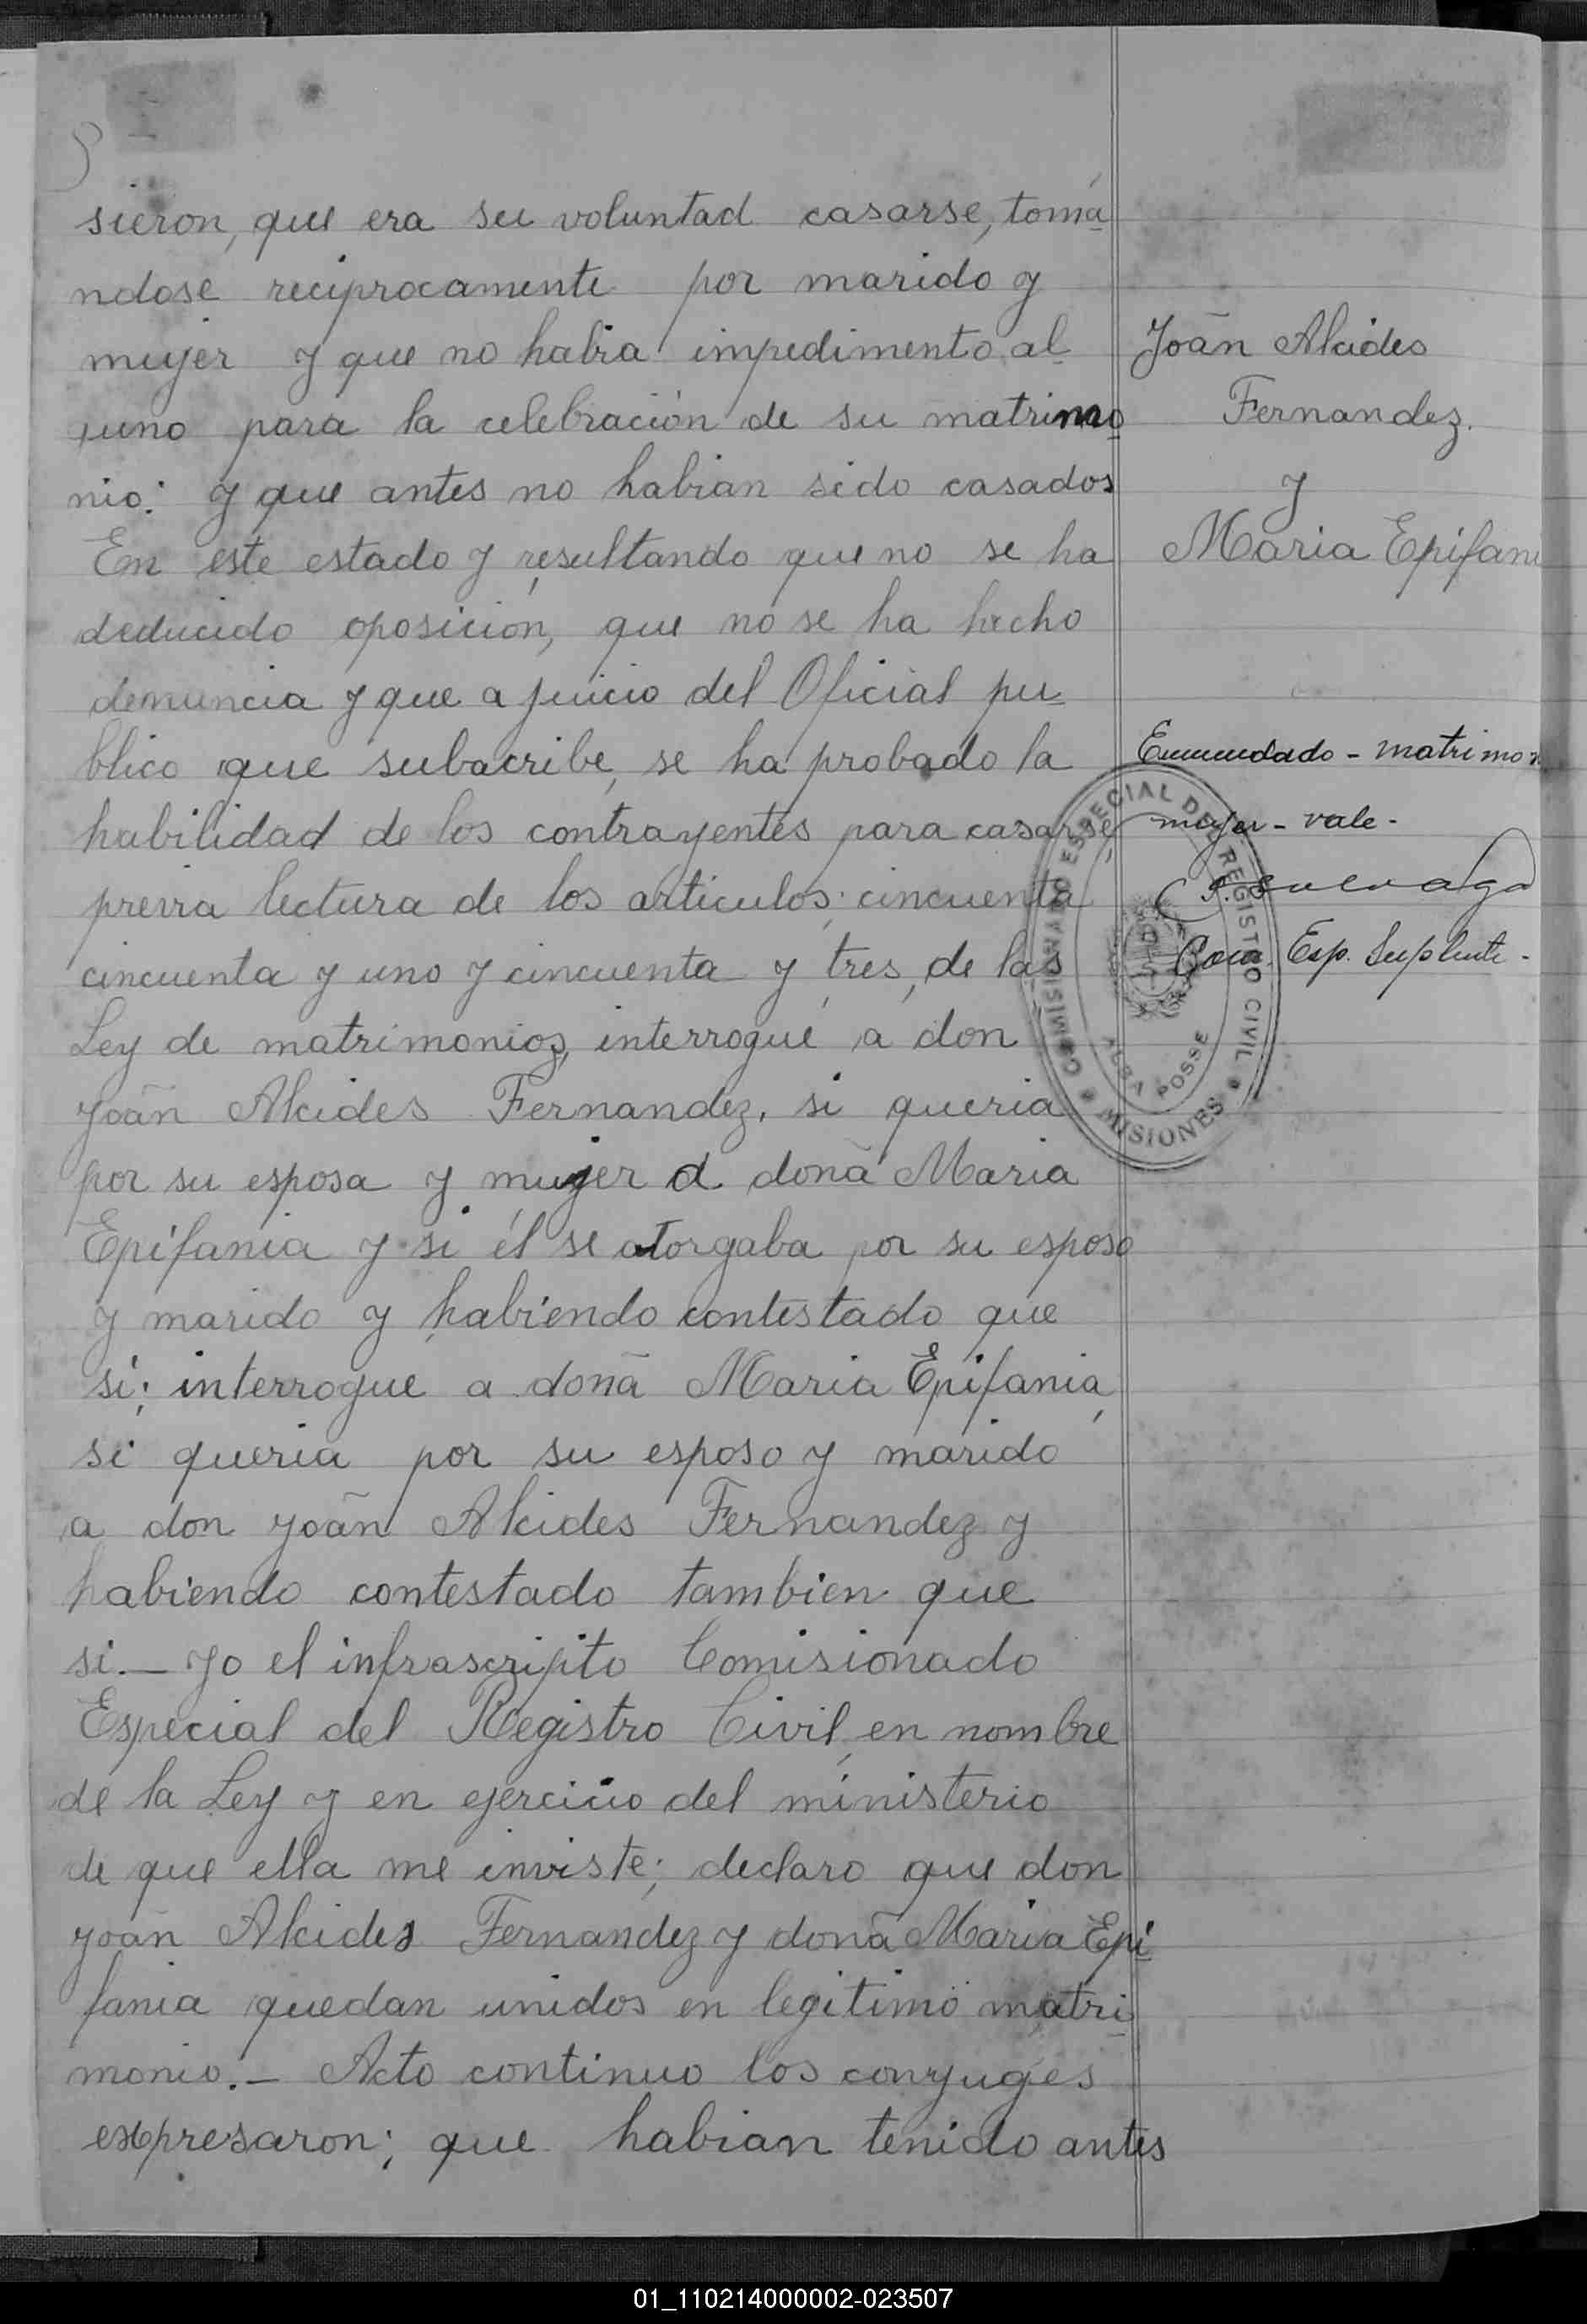 sieron, que era su voluntad casarse, tomá
ndose reciprocamente por marido y
mujer y que no habia impedimento al
guno para la celebración de su matrimo
nio: y que antes no habian sido casados
En este estado y resultando que no se ha
deducido oposición, que no se ha hecho
denuncia y que a juicio del Oficial pu
blico que subscribe, se ha probado la
habilidad de los contrayentes para casarse
previa lectura de los articulos; cincuenta
cincuenta y uno y cincuenta y tres, de las
Ley de matrimonios, interrogué a don
Joãn Alcides Fernandez, si queria
por su esposa y mujer a doña Maria
Epifania y si él se otorgaba por su esposo
y marido y habiendo contestado que
si; interrogué a doña Maria Epifania,
si queria por su esposo y marido
a don Joãn Alcides Fernandez y
habiendo contestado tambien que
si.— Yo el infrascripto Comisionado
Especial del Registro Civil, en nombre
de la Ley y en ejercicio del ministerio
de que ella me inviste; declaro que don
Joãn Alcides Fernandez y doña Maria Epi
fania quedan unidos en legitimo matri
monio.— Acto continuo los conyuges
expresaron; que habian tenido antes
Joãn Alcides
Fernandez.
y
Maria Epifani
Enmendado - matrimon
mujer - vale -
Com. Esp. Suplente -
COMISIONADO ESPECIAL DEL REGISTRO CIVIL
ALBA POSSE
MISIONES
01_110214000002-023507